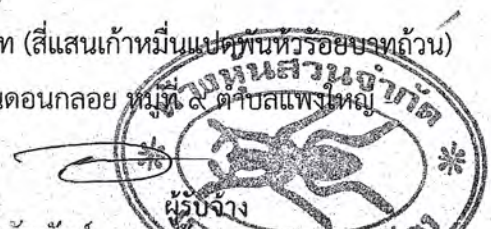 ท (สี่แสนเก้าหมื่นแปดพันห้าร้อยบาทถ้วน)
นดอนกลอย หมู่ที่ ๙ ตำบลแพงใหญ่
ห้างหุ้นส่วนจำกัด
ผู้รับจ้าง